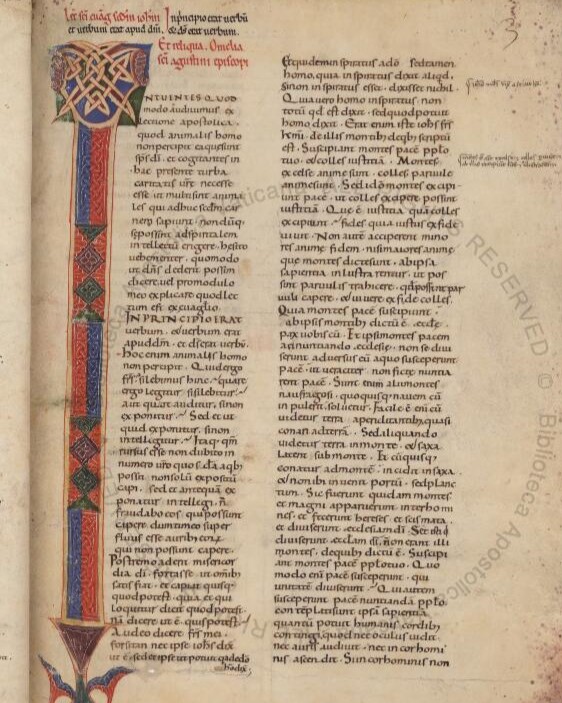 Lec̄ sc̄i euāg sedm̄ ioh̄m In principio erat uerbū
et uerbum erat apud dm̄. & dš erat uerbum.
Et reliqua. Omelia
sc̄i agustini episcopi
INTUENTES QUOD
modo audiuimus ex
lectione apostolica.
quod animalis homo
non percipit ea que sunt
sp̄s dī. et cogitantes in
hac presente turba
caritatis ur̄e necesse
esse ut multi sint anima
les qui adhuc sedm̄ car
nem sapiunt. nondūq;
se possint ad spiritalem
intellectū erigere. hesito
uehementer. quomodo
ut dn̄s dederit possim
dicere. uel pro modulo
meo explicare quod lec
tum est ex euāglio.
IN PRINCIPIO ERAT
uerbum. & uerbum erat
apud dm̄. et dš erat uerbū.
Hoc enim animalis homo
non percipit. Quid ergo
fr̄s. silebimus hinc. quare
ergo legitur si silebitur.
aut quare auditur. si non
exponitur. Sed et ut
quid exponitur. si non
intellegitur. Itaq; qm̄
rursus esse non dubito in
numero ur̄o quosdā a qb;
possit non solū expositū
capi. sed et antequā ex
ponatur intellegi. n̄
fraudabo eos. qui possunt
capere. dum timeo super
fluus esse auribus eorum
qui non possunt capere.
Postremo aderit misericor
dia dī. fortasse ut omnib;
satis fiat. et capiat quisq;
quod potest. quia et qui
loquitur dicit quod potest.
nā dicere ut ē. quis potest.
Audeo dicere fr̄s mei.
forsitan nec ipse ioh̄s dix
ut ē. sed et ipse ut potuit. qa de dō
h̄o dix.
Et quidem inspiratus a dō. sed tamen
homo. quia inspiratus dixit aliqd.
si non inspiratus esset. dixisset nichil.
Quia uero homo inspiratus. non
totū qd est dixit. sed quod potuit
homo dixit. Erat enim iste ioh̄s fr̄s
km̄i. de illis montib; de qb; scriptū
est. Suscipiant montes pacē pplo
tuo. & colles iustitiā. Montes.
excelse anime sunt. colles paruule
anime sunt. Sed idō montes excipi
unt pacē. ut colles excipere possint
iustitiā. Que ē iustitia quā colles
excipiunt. fides quia iustus ex fide
uiuit. Non autē acciperent mino
res anime fidem. nisi maiores anime
que montes dicte sunt. ab ipsa
sapientia inlustrarentur. ut pos
sint paruulis traicere. qd possent par
uuli capere. & uiuere ex fide colles.
Quia montes pacē suscipiunt.
ab ipsis montib; dictū ē. ecclē.
pax uobiscū. Et ipsi montes pacem
adnuntiando ecclesie. non se diui
serunt aduersus eū a quo susceperunt
pacē. ut ueraciter non ficte nuntia
rent pacē. Sunt enim alii montes
naufragosi. quo quisq; nauem cū
inpulerit. soluetur. Facile ē enī cū
uidetur terra a periclitantib; quasi
conari ad terrā. Sed aliquando
uidetur terra in monte. & saxa
latent sub monte. Et cū quisq;
conatur ad montē. incidit in saxa.
& non ibi inuenit portū. sed planc
tum. Sic fuerunt quidam montes
et magni apparuerunt inter homi
nes. et fecerunt hereses. et scismata.
et diuiserunt ecclesiam dī. Set isti q
diuiserunt ecclam dī. non erant illi
montes. de quib; dictū ē. Suscipi
ant montes pacē pplo tuo. Quo
modo enī pacē susceperunt. qui
unitatē diuiserunt. Qui autem
susceperunt pacē nuntiandā pplo.
contēplati sunt ipsa sapientia
quantū potuit humanis cordib;
contingi. quod nec oculus uidit.
nec auris audiuit. nec in cor homi
nis ascendit. Si in cor hominis non
RESERVED © Biblioteca Apostolic